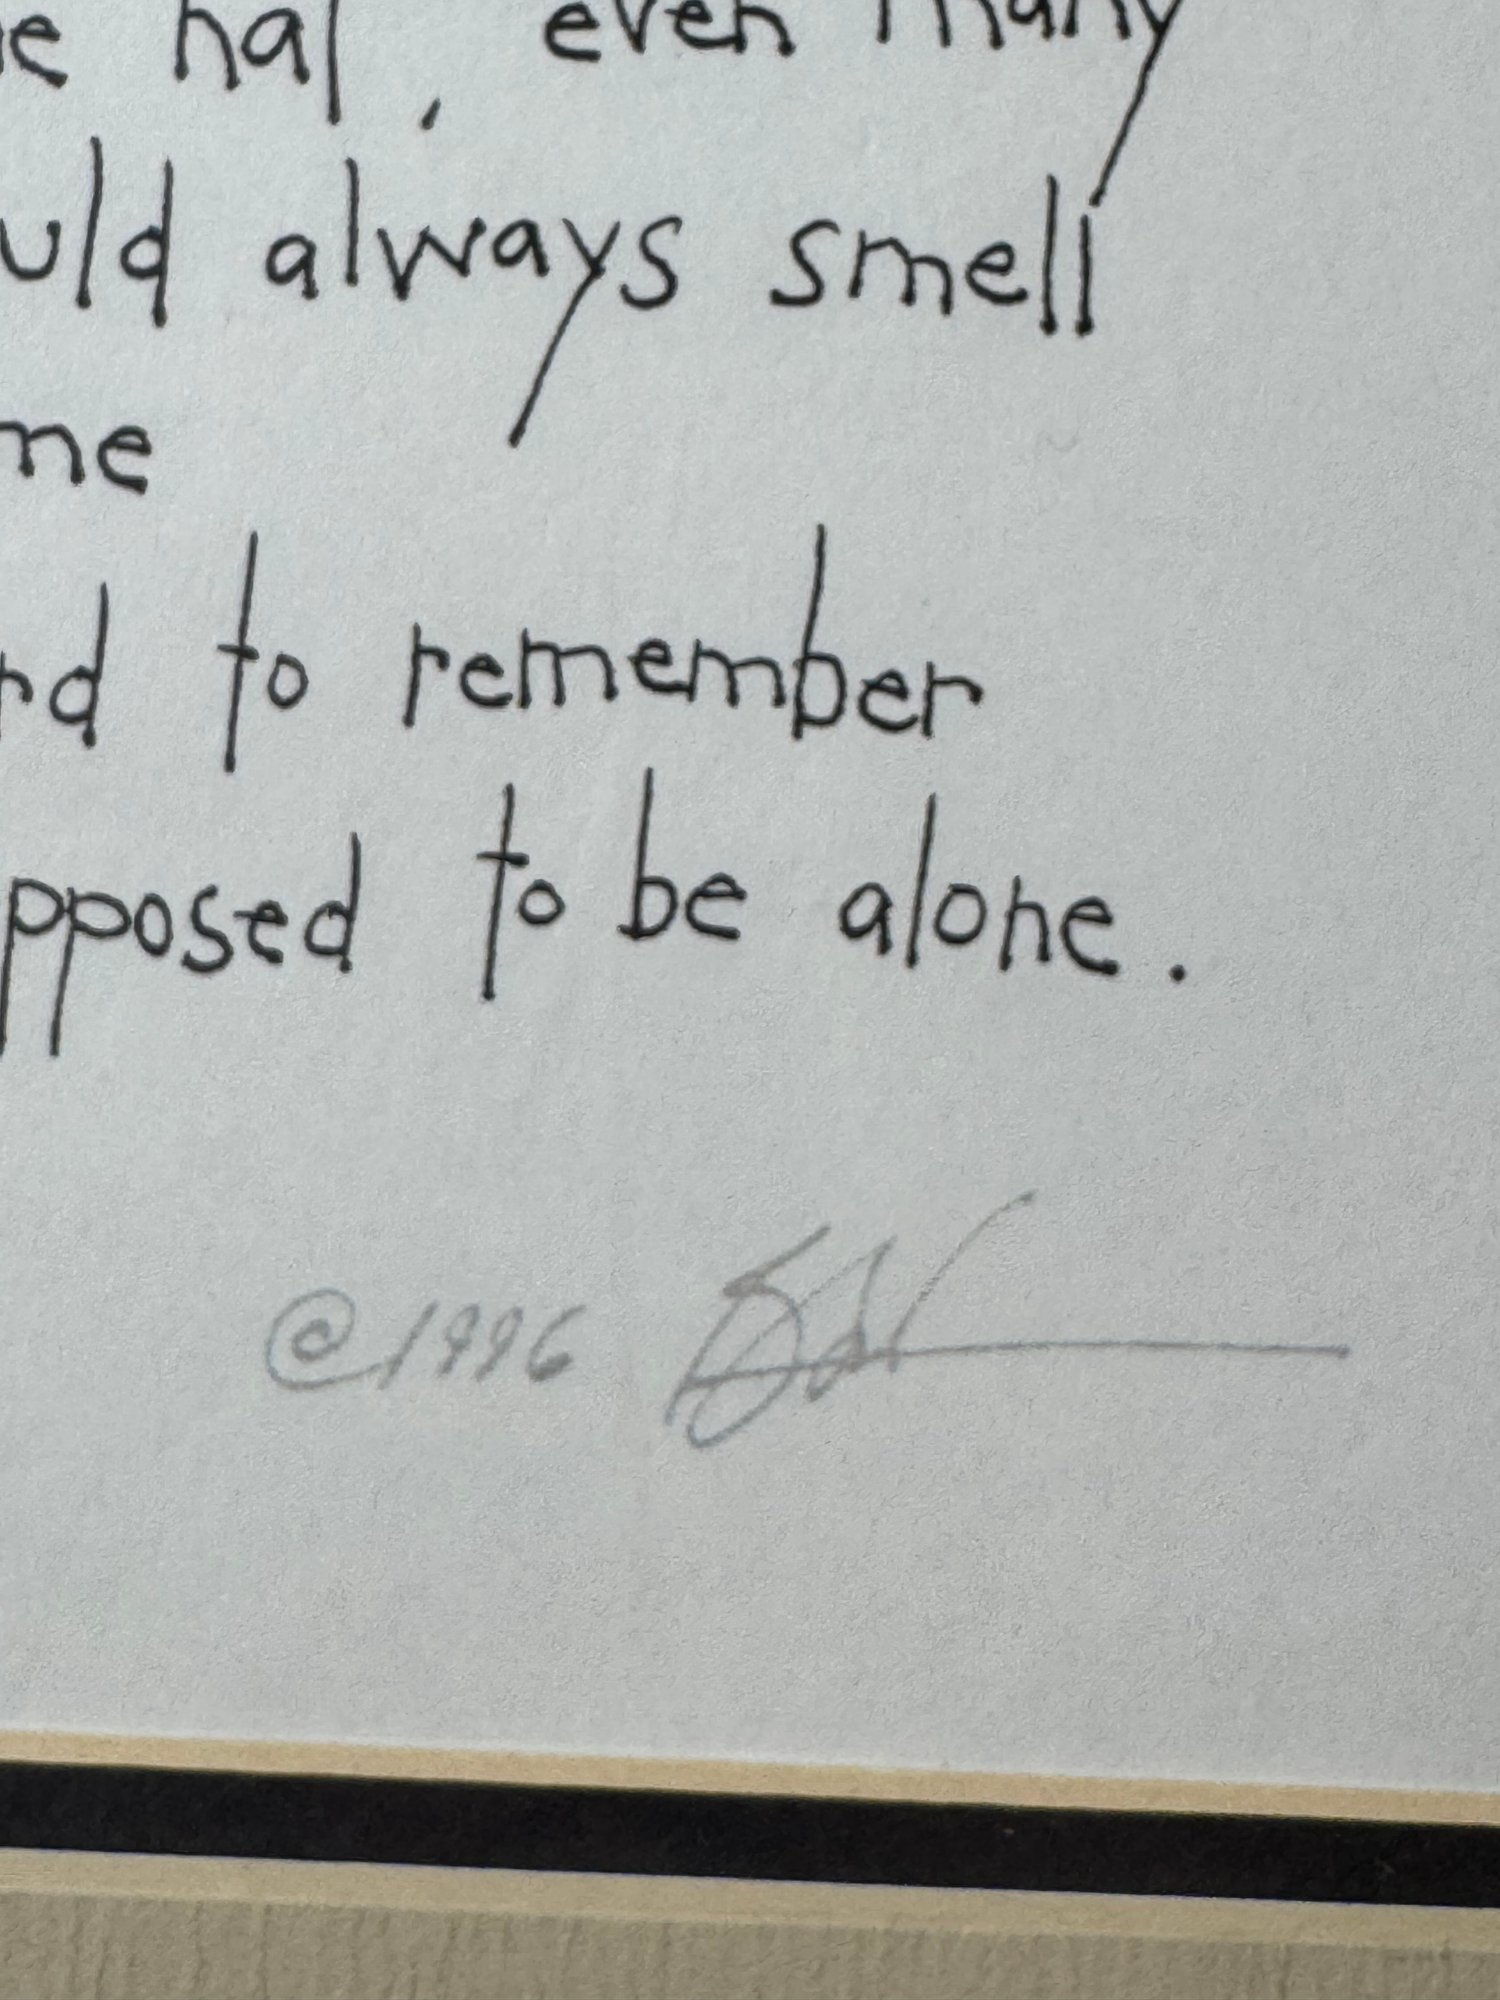 e hat, even many
uld always smell
me
rd to remember
pposed to be alone.
@1996